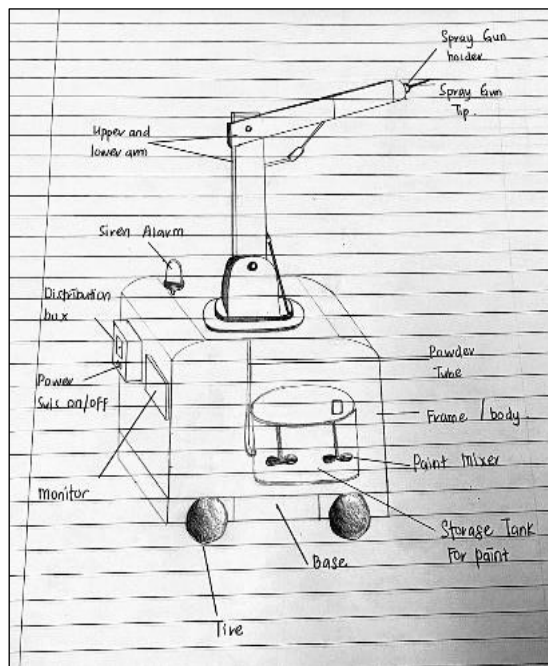 Spray Gun
holder
Spray Gun
Tip.
Upper and
lower arm
Siren Alarm
Distribution
box
Power
Suis on/off
Monitor
Powder
Tube
Frame / body
Paint Mixer
Storage Tank
For paint
Base
Tire